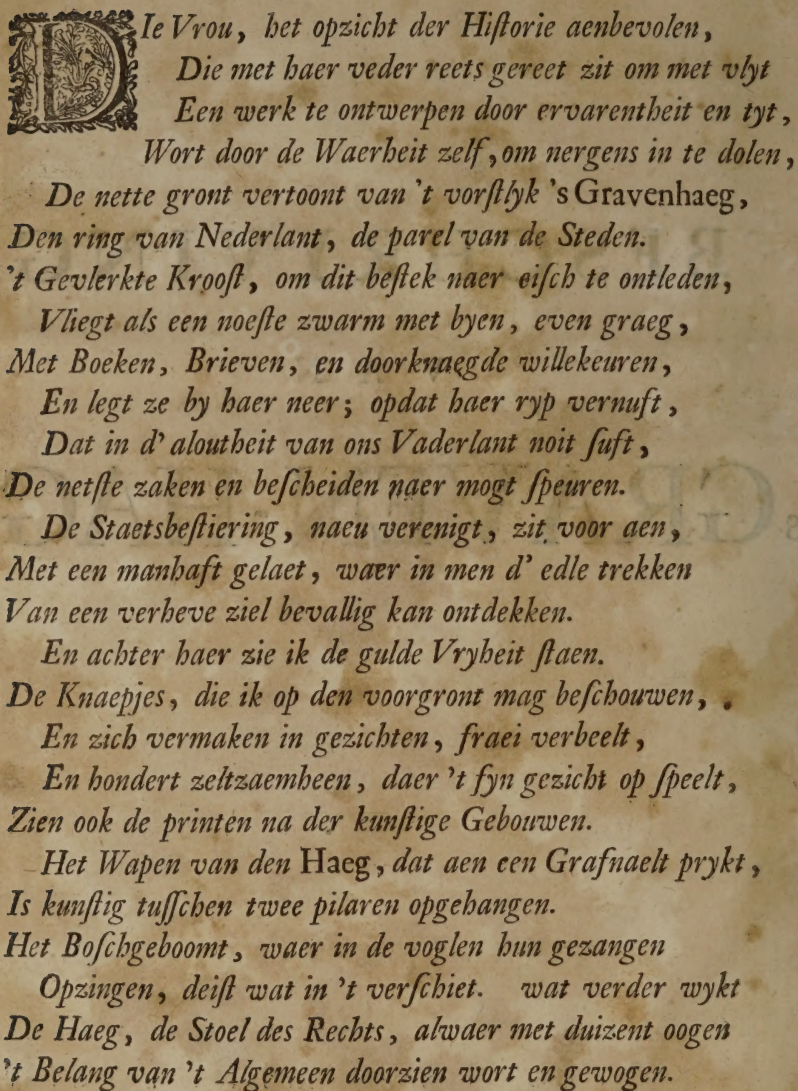 DIe Vrou, het opzicht der Hiſtorie aenbevolen,
Die met haer veder reets gereet zit om met vlyt
Een werk te ontwerpen door ervarentheit en tyt,
Wort door de Waerheit zelf, om nergens in te dolen,
De nette gront vertoont van 't vorſtlyk 's Gravenhaeg,
Den ring van Nederlant, de parel van de Steden.
't Gevlerkte Krooſt, om dit beſtek naer eiſch te ontleden,
Vliegt als een noeſte zwarm met byen, even graeg,
Met Boeken, Brieven, en doorknaegde willekeuren,
En legt ze by haer neer; opdat haer ryp vernuft,
Dat in d' aloutheit van ons Vaderlant noit ſuft,
De netſte zaken en beſcheiden naer mogt ſpeuren.
De Staetsbeſtiering, naeu verenigt, zit voor aen,
Met een manhaft gelaet, waer in men d' edle trekken
Van een verheve ziel bevallig kan ontdekken.
En achter haer zie ik de gulde Vryheit ſtaen.
De Knaepjes, die ik op den voorgront mag beſchouwen,
En zich vermaken in gezichten, fraei verbeelt,
En hondert zeltzaemheen, daer 't fyn gezicht op ſpeelt,
Zien ook de printen na der kunſtige Gebouwen.
Het Wapen van den Haeg, dat aen een Grafnaelt prykt,
Is kunſtig tuſſchen twee pilaren opgehangen.
Het Boſchgeboomt, waer in de voglen hun gezangen
Opzingen, deiſt wat in 't verſchiet. wat verder wykt
De Haeg, de Stoel des Rechts, alwaer met duizent oogen
't Belang van 't Algemeen doorzien wort en gewogen.